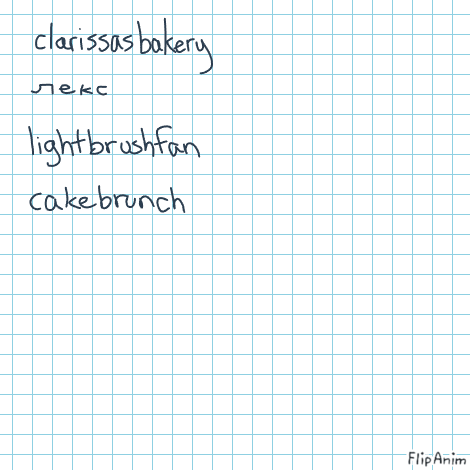 clarissasbakery
лекс
lightbrushfan
cakebrunch
FlipAnim